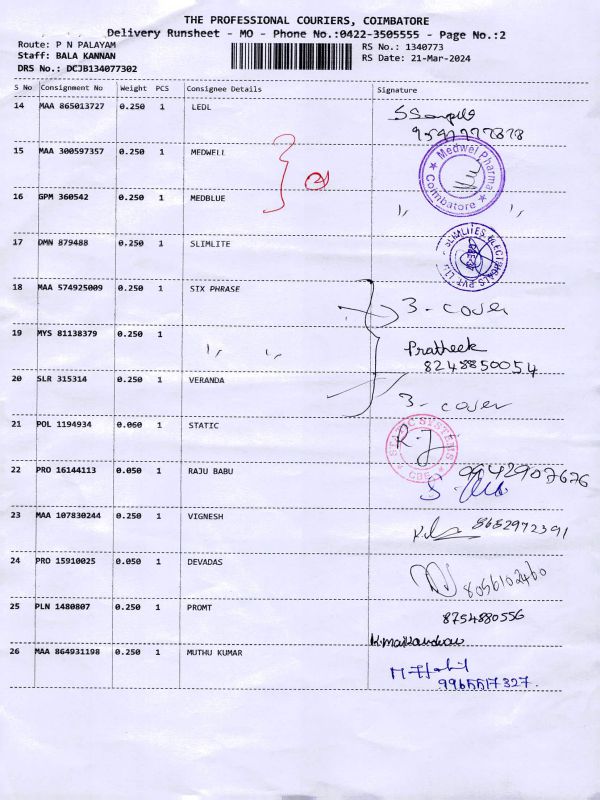 THE PROFESSIONAL COURIERS, COIMBATORE
Delivery Runsheet - MO - Phone No.:0422-3505555 - Page No.:2
Route: P N PALAYAM
Staff: BALA KANNAN
DRS No.: DCJB134077302
RS No.: 1340773
RS Date: 21-Mar-2024
S No Consignment No Weight PCS Consignee Details Signature
14 MAA 865013727 0.250 1 LEDL
15 MAA 300597357 0.250 1 MEDWELL
Medwel Pharma
Coimbatore
16 GPM 360542 0.250 1 MEDBLUE
17 DMN 879488 0.250 1 SLIMLITE
18 MAA 574925009 0.250 1 SIX PHRASE 3-cover
19 MYS 81138379 0.250 1
Pratheek
8248850054
20 SLR 315314 0.250 1 VERANDA 3-cover
21 POL 1194934 0.060 1 STATIC
22 PRO 16144113 0.050 1 RAJU BABU 9942907676
23 MAA 107830244 0.250 1 VIGNESH 8652972391
24 PRO 15910025 0.050 1 DEVADAS 8056102460
25 PLN 1480807 0.250 1 PROMT 8754880556
26 MAA 864931198 0.250 1 MUTHU KUMAR
9965517327.